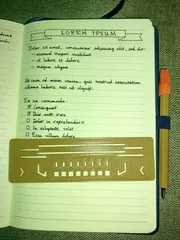 LOREM IPSUM
Dolor sit amet, consectetur adipiscing elit, sed do:
- eiusmod tempor incididunt
- ut labore et dolore
- magna aliqua
Ut enim ad minim veniam, quis nostrud exercitation
ullamco laboris nisi ut aliquip.
Ex ea commodo:
Consequat
Duis aute irure
Dolor in reprehenderit
In voluptate velit
Esse cillum dolore